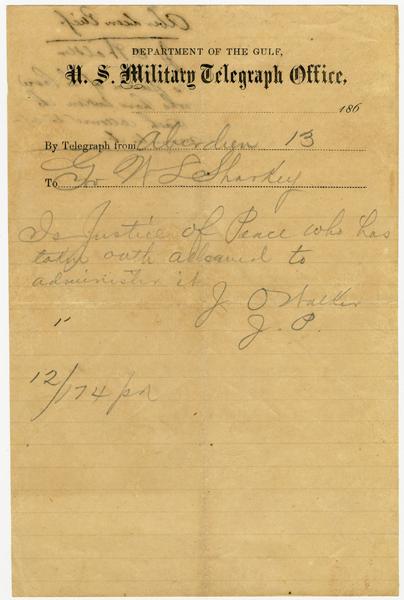 DEPARTMENT OF THE GULF,
U. S. Military Telegraph Office,
186
By Telegraph from Aberdeen 13
To Gov W L Sharkey
Is Justice of Peace who has
taken oath allowed to
administer it
J O Walker
J. P.
"
12/174 pd